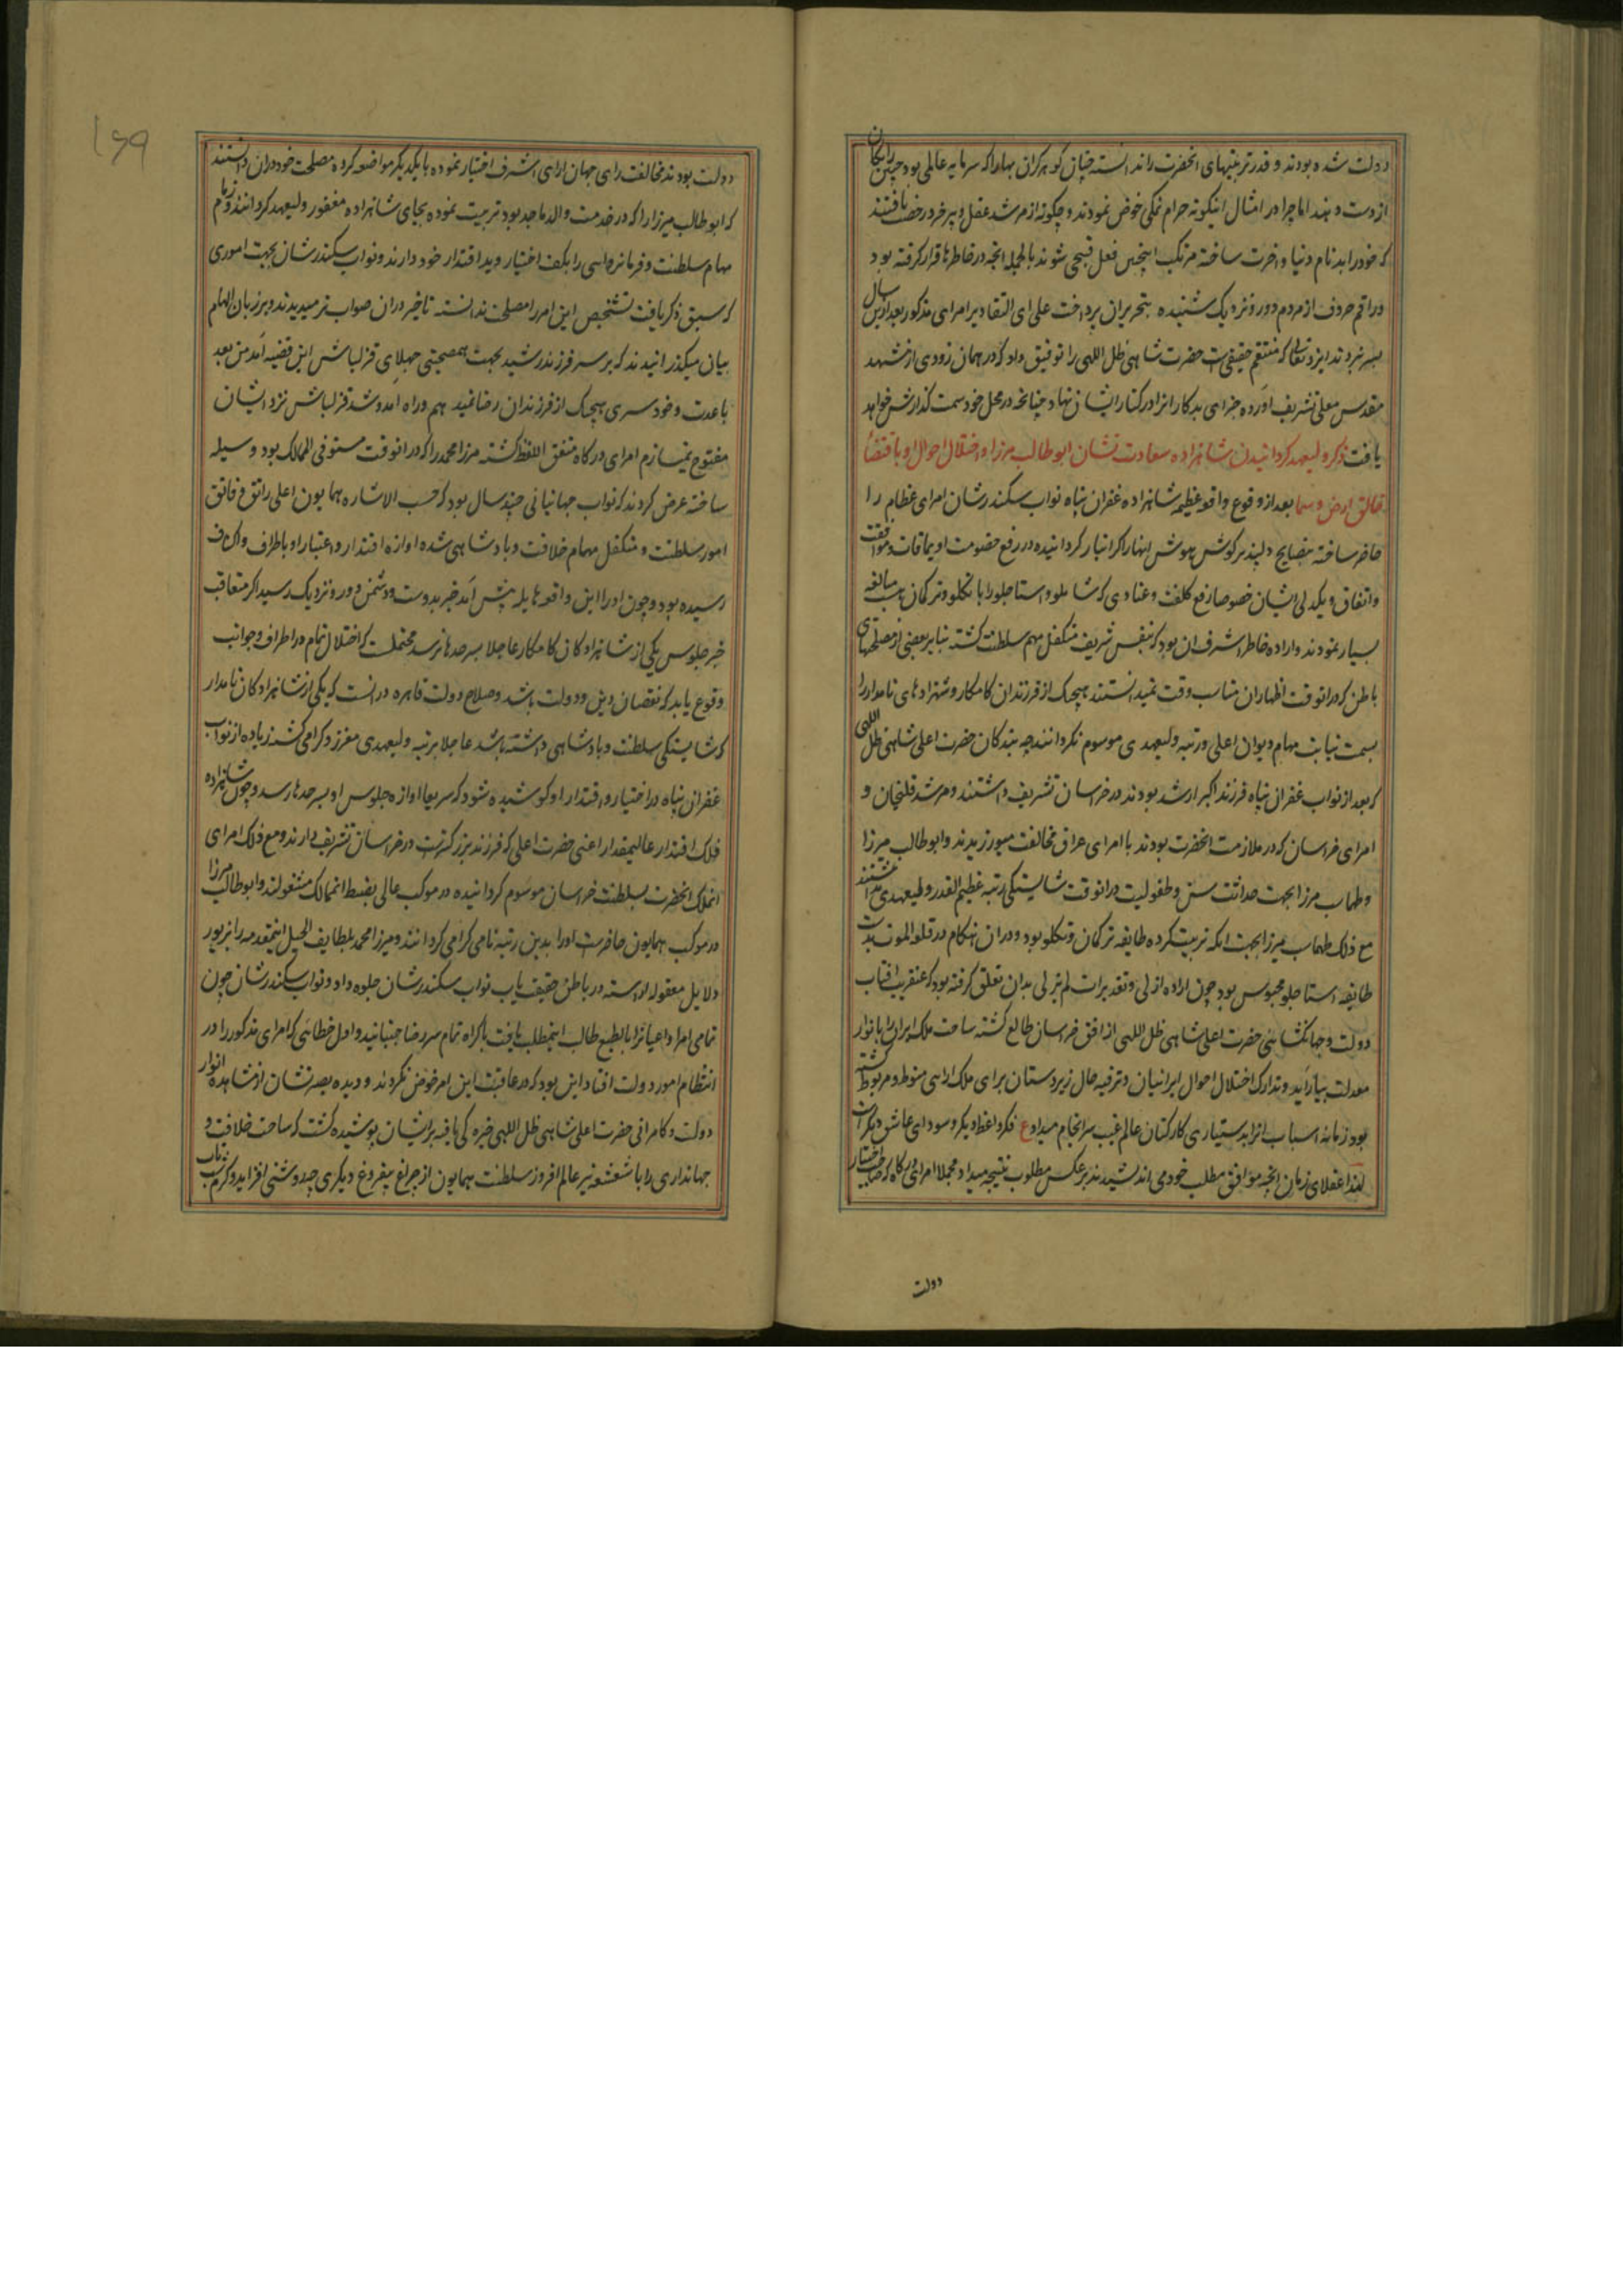 دولت شده بودند و قدر تربیتهای انحضرت را ندانسته چنان گوهر گران بها را که سرمایه عالمی بود چنین رایگان
از دست دهند اما چرا در امثال اینگونه حرام نمکی خوض نمودند و چگونه از مرشد عقل و پیر خرد رخصت یافتند
که خود را بدنام دنیا و اخرت ساخته مرتکب اینچنین فعل قبیحی شوند بالجمله انچه در خاطرها قرار گرفته بود
و راقم حروف از مردم دور و نزدیک شنیده بتحریر ان پرداخت علی ای التقادیر امرای مذکور بعد ازین سال
بسر نبردند ایزد تعالی که منتقم حقیقی است حضرت شاهی ظل اللهی را توفیق داد که در همان زودی از مشهد
مقدس معلی تشریف اورده جزای بدکار انرا در کنار ایشان نهاد چنانچه در محل خود سمت گذارش خواهد
یافت ذکر ولیعهد گردانیدن شاهزاده سعادت نشان ابوطالب میرزا و اختلال احوال او باقتضاء
خالق ارض و سما بعد از وقوع واقعه عظیمه شاهزاده غفران پناه نواب سکندرشان امرای عظام را
حاضر ساخته بنصایح دلپذیر گوش هوش انها را گرانبار گردانیده در رفع خصومت اویماقات و موافقت
و اتفاق و یکدلی ایشان خصوصا رفع کلفت و عنادی که شاملو و استاجلو را با تکلو و ترکمان هست مبالغه
بسیار نمودند و اراده خاطر اشرف ان بود که بنفس شریف متکفل مهم سلطنت گشته بنابر بعضی از مصلحتهای
باطن که در انوقت اظهار ان مناسب وقت نمیدانستند هیچیک از فرزندان کامکار و شهزادهای نامدار را
بسمت نیابت مهام دیوان اعلی و رتبه ولیعهدی موسوم نگردانند چه بندگان حضرت اعلی شاهی ظل اللهی
که بعد از نواب غفران پناه فرزند اکبر ارشد بودند در خراسان تشریف داشتند و مرشد قلیخان و
امرای خراسان که در ملازمت انحضرت بودند با امرای عراق مخالفت میورزیدند و ابوطالب میرزا
و طهماسب میرزا بجهت حداثت سن و طفولیت در انوقت شایستگی رتبه عظیم القدر ولیعهدی نداشتند
مع ذلک طهماسب میرزا بجهت انکه تربیت کرده طایفه ترکمان و تکلو بود و در ان هنگام در قلعه الموت بدست
طایفه استاجلو محبوس بود چون اراده ازلی و تقدیرات لم یزلی بدان تعلق گرفته بود که عنقریب افتاب
دولت و جهانگشائی حضرت اعلی شاهی ظل اللهی از افق خراسان طالع گشته ساحت ملک ایران را بانوار
معدلت بیاراید و تدارک اختلال احوال ایرانیان و ترفیه حال زیردستان برای ملک ارای منوط و مربوط گشته
بود زمانه اسباب انرا بدستیاری کارکنان عالم غیب سرانجام میداد ع فکر واعظ دیگر و سودای عاشق دیگر است
لهذا عقلای زمان انچه موافق مطلب خود می اندیشیدند بر عکس مطلوب نتیجه میداد مجملا امرای درگاه که صاحب اختیار
دولت
۱۶۹
دولت بودند مخالفت رای جهان ارای اشرف اختیار نموده با یکدیگر مواضعه کرده مصلحت خود دران دانستند
که ابوطالب میرزا را که در خدمت والد ماجد بود تربیت نموده بجای شاهزاده مغفور ولیعهد گردانند و زمام
مهام سلطنت و فرمانروائی را بکف اختیار و ید اقتدار خود دارند و نواب سکندرشان بجهت اموری
که سبق ذکر یافت تشخیص این امر را مصلحت ندانسته تاخیر دران صواب تر میدیدند و بر زبان الهام
بیان میگذرانیدند که بر سر فرزند رشید بجهت همصحبتی جهلای قزلباش این قضیه امد من بعد
باعدت و خودسری هیچیک از فرزندان رضا نمیدهم و راه امد و شد قزلباش نزد ایشان
مفتوح نمیسازم امرای درگاه متفق اللفظ گشته میرزا محمد را که در انوقت مستوفی الممالک بود وسیله
ساخته عرض کردند که نواب جهانبانی چند سال بود که حسب الاشاره همایون اعلی راتق و فاتق
امور سلطنت و متکفل مهام خلافت و پادشاهی شده اوازه اقتدار و اعتبار او باطراف و اکناف
رسیده بود و چون او را این واقعه هایله پیش امد خبر بدوست و دشمن دور و نزدیک رسید اگر متعاقب
خبر جلوس یکی از شاهزادگان کامکار عاجلا بسرحدها نرسد محتملست که اختلال تمام در اطراف و جوانب
وقوع یابد که نقصان دین و دولت باشد و صلاح دولت قاهره در انست که یکی از شاهزادگان نامدار
که شایستگی سلطنت و پادشاهی داشته باشد عاجلا برتبه ولیعهدی معزز و گرامی گشته زیاده از نواب
غفران پناه در اختیار و اقتدار او کوشیده شود که سریعا اوازه جلوس او بسرحدها رسد و چون شاهزاده
فلک اقتدار عالیمقدار اعنی حضرت اعلی که فرزند بزرگترست در خراسان تشریف دارند و مع ذلک امرای
انملک انحضرت بسلطنت خراسان موسوم گردانیده در موکب عالی بضبط انممالک مشغولند و ابوطالب میرزا
در موکب همایون حاضرست او را بدین رتبه نامی گرامی گردانند و میرزا محمد بلطایف الحیل اینمقدمه را بزیور
دلایل معقوله اراسته در باطن حقیقت یاب نواب سکندرشان جلوه داد و نواب سکندرشان چون
تمامی امرا و اعیان را بالطبع طالب اینمطلب یافت باکراه تمام سر رضا جنبانید و اول خطائی که امرای مذکور را در
انتظام امور دولت افتاد این بود که در عاقبت این امر خوض نکردند و دیده بصیرتشان از مشاهده انوار
دولت و کامرانی حضرت اعلی شاهی ظل اللهی خیره گی یافته بر ایشان پوشیده گشت که ساحت خلافت و
جهانداری را با شعشعه نیر عالم افروز سلطنت همایون از چراغ بیفروغ دیگری چه روشنی افزاید و کرم شب تاب